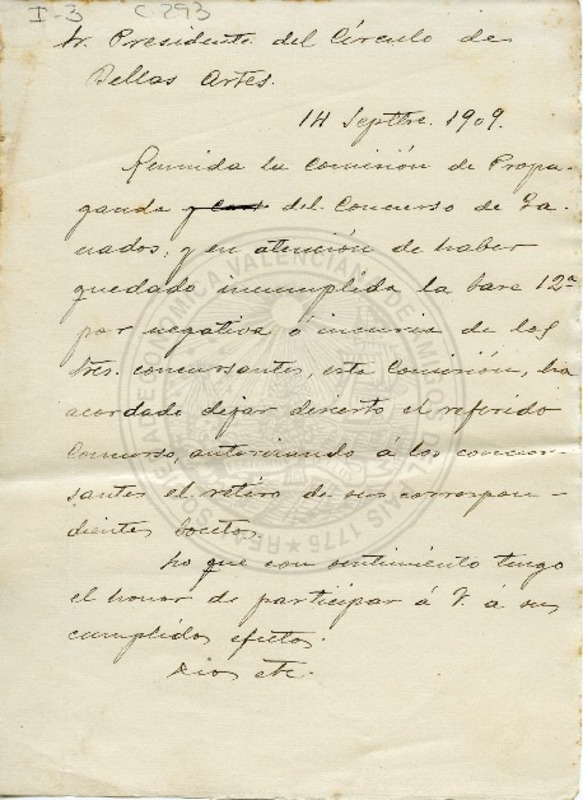 I-3 C-293
Sr. Presidente del Círculo de
Bellas Artes.
14 Septbre. 1909.
Reunida la Comisión de Propa-
ganda y Cart del Concurso de
nados, y en atención de haber
quedado incumplida la base 12ª
por negativa ó incuria de los
Sres. concursantes, esta Comisión, ha
acordado dejar desierto el referido
Concurso, autorizando á los concur-
santes el retiro de sus correspon-
dientes bocetos.
Lo que con sentimiento tengo
el honor de participar á V. á sus
cumplidos efectos.
Dios etc.
REAL SOCIEDAD ECONOMICA VALENCIANA DE AMIGOS DEL PAIS 1776